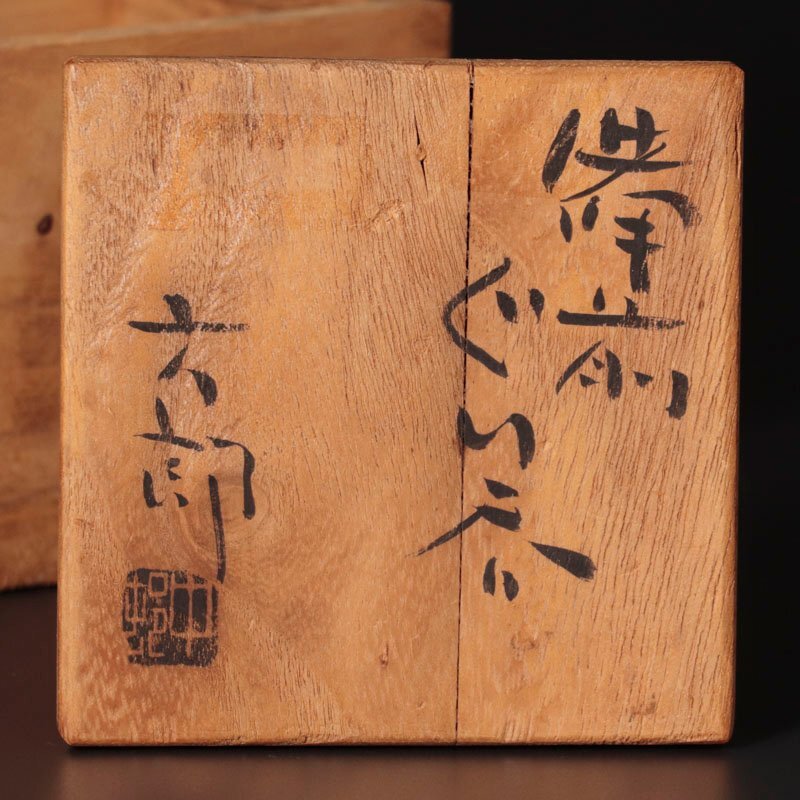 備前
ぐい呑
六郎